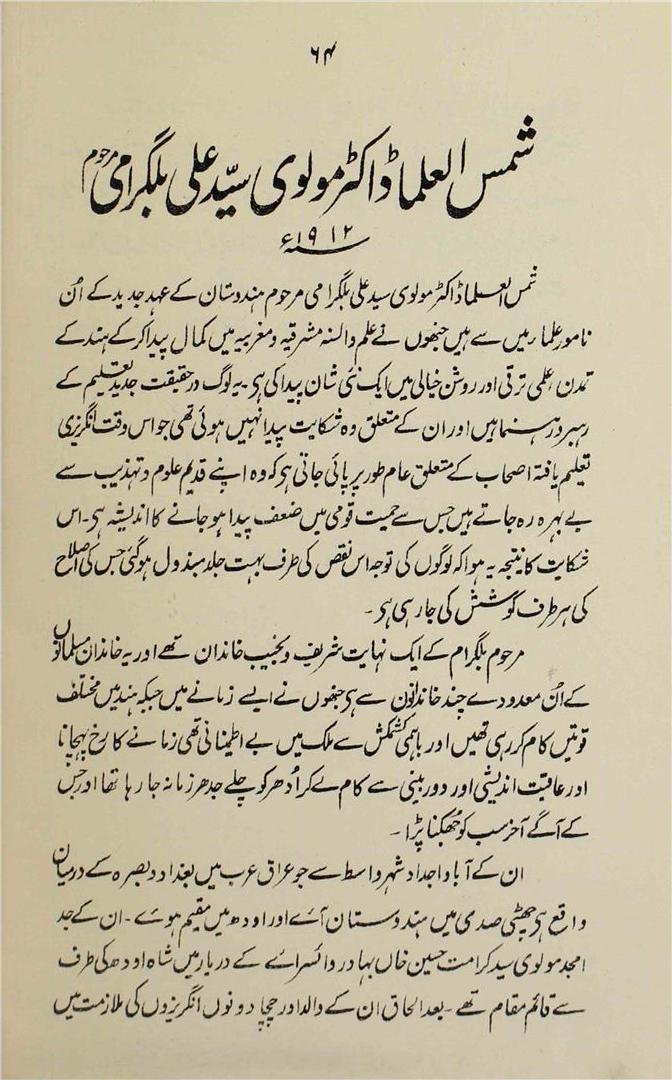 ۶۴
شمس العلما ڈاکٹر مولوی سیّد علی بلگرامی مرحوم
۱۹۱۲ء
شمس العلما ڈاکٹر مولوی سید علی بلگرامی مرحوم ہندوستان کے عہد جدید کے اُن
نامور علما ر میں سے ہیں جنھوں نے علم والسنہ مشرقیہ و مغربیہ میں کمال پیدا کر کے ہند کے
تمدن، علمی ترقی اور روشن خیالی میں ایک نئی شان پیدا کی ہی۔ یہ لوگ درحقیقت جدید تعلیم کے
رہبر و رہنما ہیں اور ان کے متعلق وہ شکایت پیدا نہیں ہوئی تھی جو اس وقت انگریزی
تعلیم یافتہ اصحاب کے متعلق عام طور پر پائی جاتی ہی کہ وہ اپنے قدیم علوم و تہذیب سے
بے بہرہ رہ جاتے ہیں جس سے حمیت قومی میں ضعف پیدا ہو جانے کا اندیشہ ہی۔ اس
شکایت کا نتیجہ یہ ہوا کہ لوگوں کی توجہ اس نقص کی طرف بہت جلد مبذول ہوگئی جس کی اصلاح
کی ہر طرف کوشش کی جا رہی ہی۔
مرحوم بلگرام کے ایک نہایت شریف و نجیب خاندان سے تھے اور یہ خاندان مسلمانوں
کے اُن معدودے چند خاندانوں سے ہی جنھوں نے ایسے زمانے میں جبکہ ہند میں مختلف
قوتیں کام کر رہی تھیں اور باہمی کشمکش سے ملک میں بے اطمینانی تھی زمانے کا رخ پہچانا
اور عاقبت اندیشی اور دوربینی سے کام لے کر اُدھر کو چلے جدھر زمانہ جا رہا تھا اور جس
کے آگے آخر سب کو جُھکنا پڑا۔
ان کے آبا و اجداد شہر واسط سے جو عراق عرب میں بغداد و بصرہ کے درمیان
واقع ہی چھٹی صدی میں ہندوستان آئے اور اودھ میں مقیم ہوئے۔ ان کے جد
امجد مولوی سید کرامت حسین خاں بہادر وائسرائے کے دربار میں شاہ اودھ کی طرف
سے قائم مقام تھے۔ بعد الحاق ان کے والد اور چچا دونوں انگریزوں کی ملازمت میں